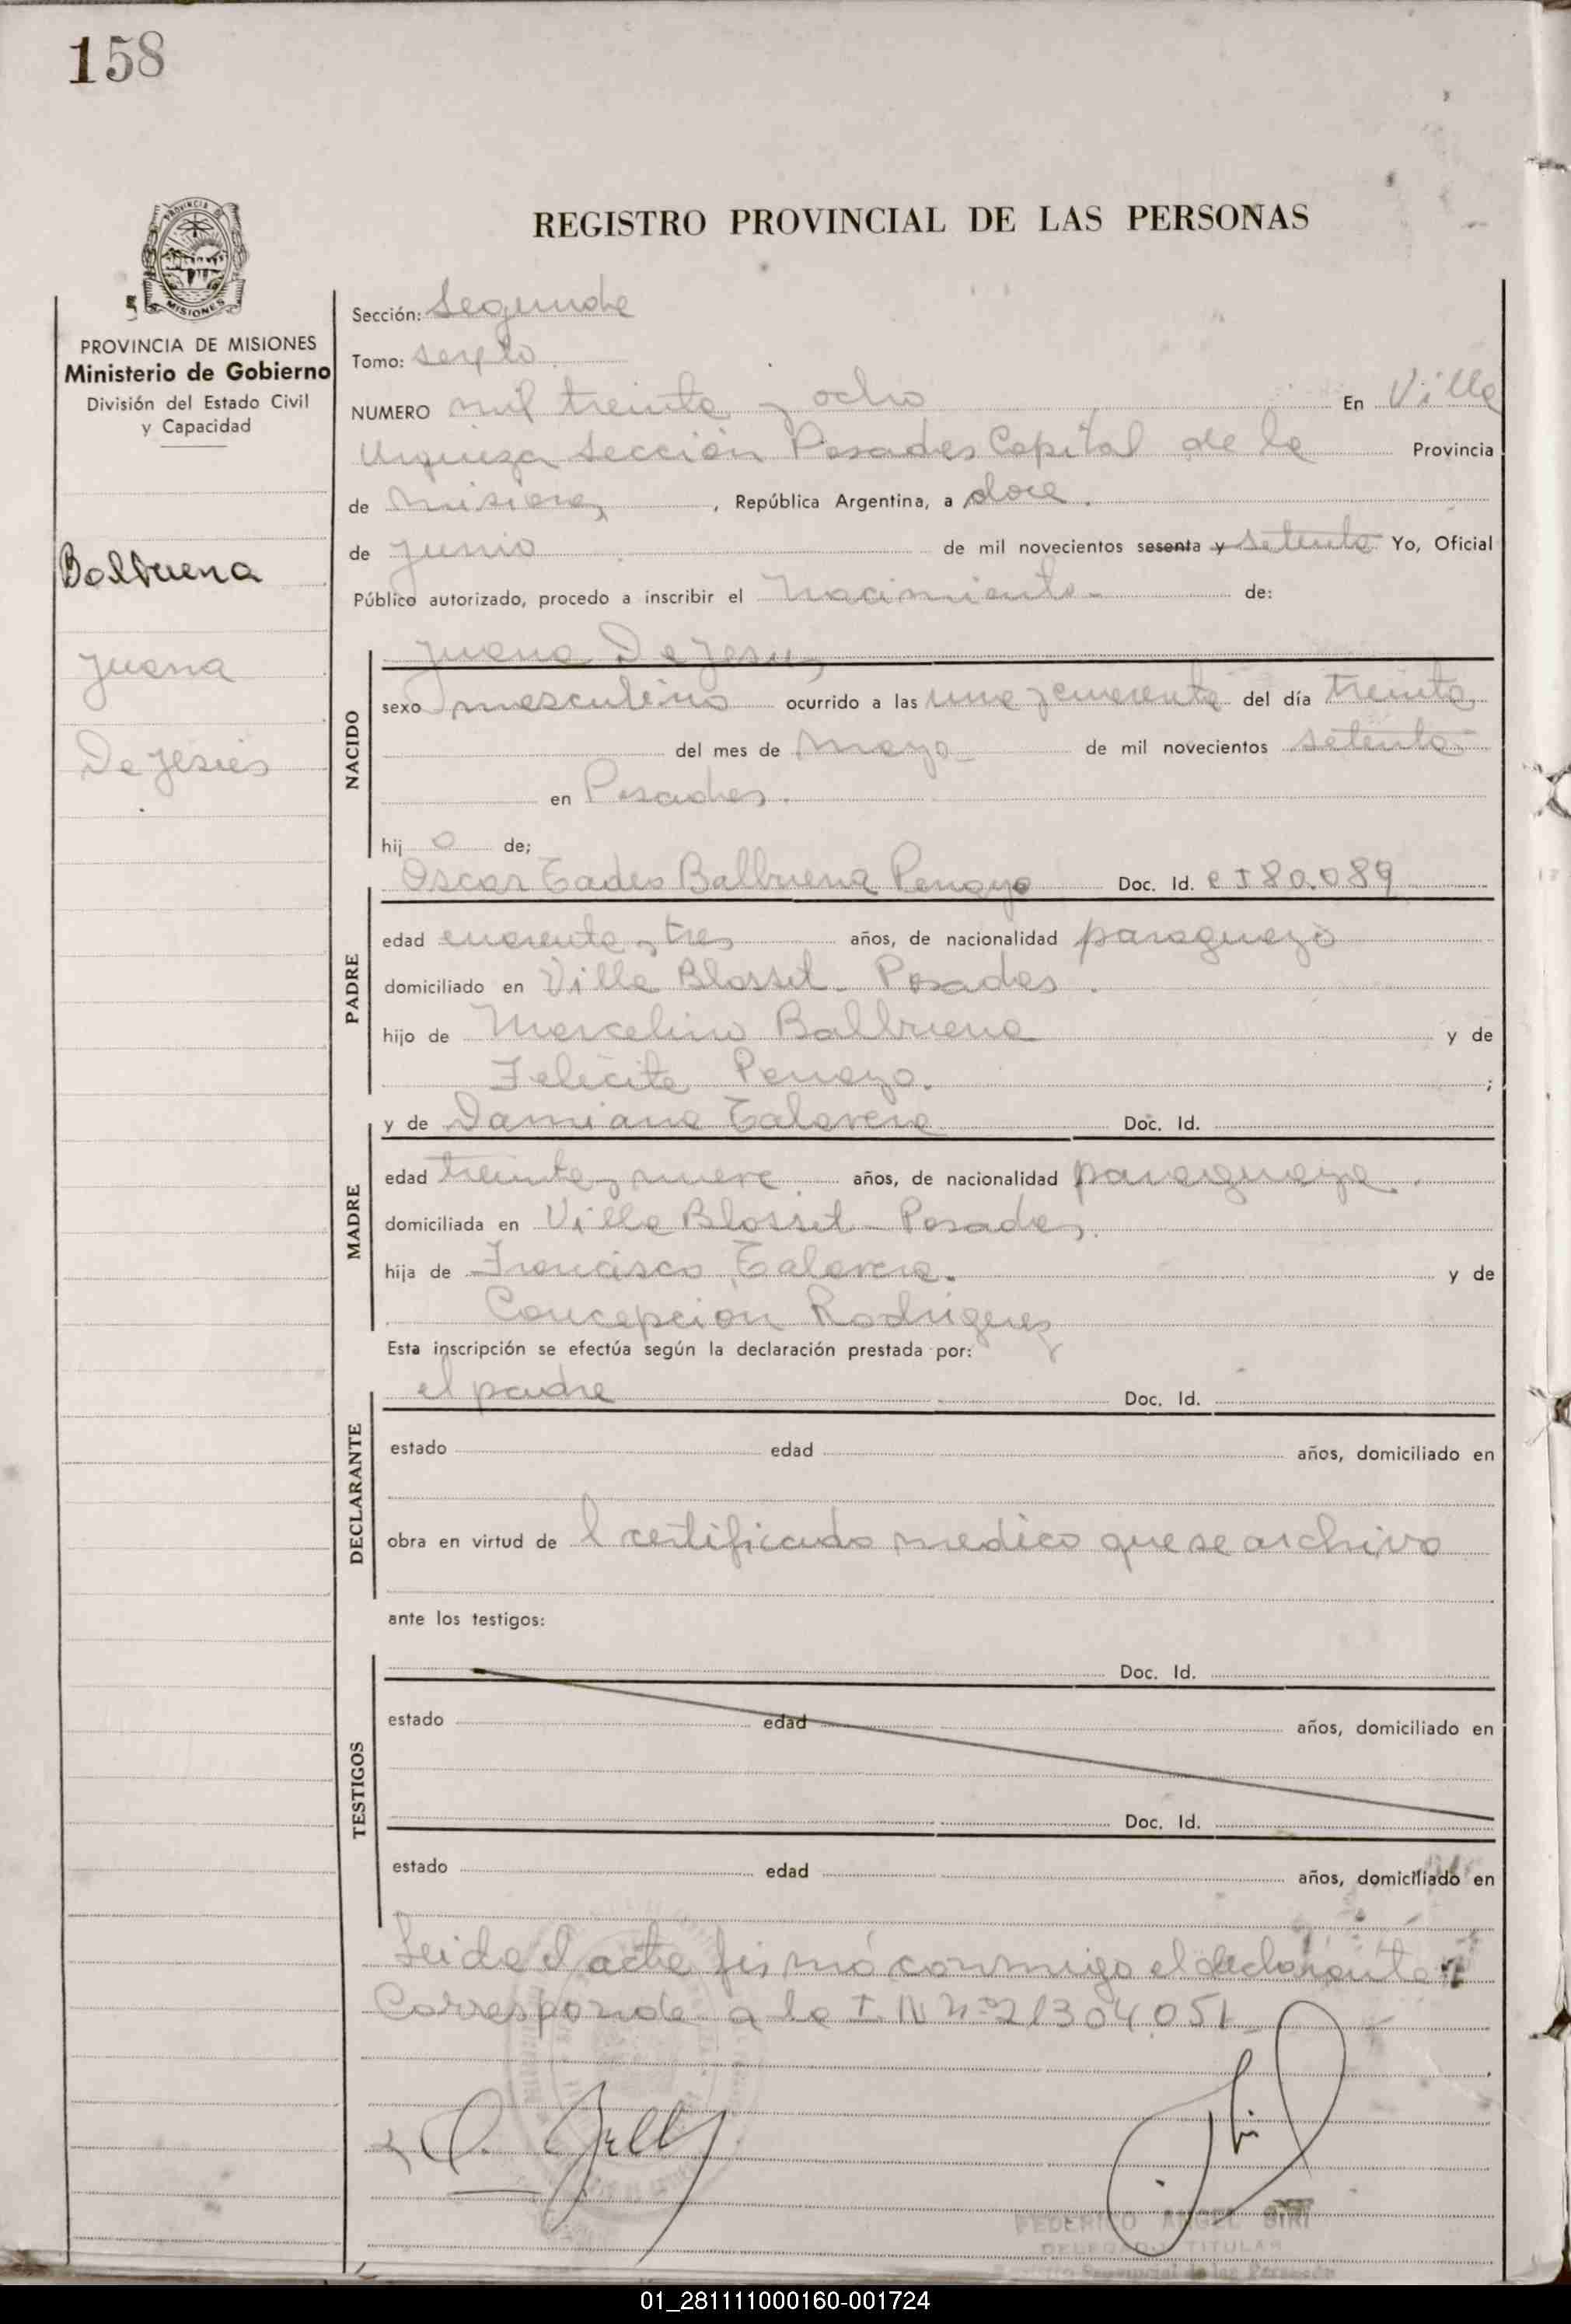 158
REGISTRO PROVINCIAL DE LAS PERSONAS
PROVINCIA DE
MISIONES
PROVINCIA DE MISIONES
Ministerio de Gobierno
División del Estado Civil
y Capacidad
Balbuena
Juana
De Jesús
Sección: Segunda
Tomo: sexto
NUMERO mil treinta y ocho En Villa
Urquiza sección Posadas Capital de la Provincia
de Misiones, República Argentina, a doce.
de junio de mil novecientos sesenta y setenta Yo, Oficial
Público autorizado, procedo a inscribir el Nacimiento- de:
NACIDO
Juana De Jesus
sexo masculino ocurrido a las una y cuarenta del día treinta
del mes de mayo de mil novecientos setenta
en Posadas.
hij o de;
PADRE
Oscar Tadeo Balbuena Penayo Doc. Id. 80.089
edad cuarenta y tres años, de nacionalidad paraguayo
domiciliado en Villa Blosset - Posadas.
hijo de Marcelino Balbuena y de
Felicita Penayo. ;
MADRE
y de Damiana Talavera Doc. Id.
edad treinta y nueve años, de nacionalidad paraguaya.
domiciliada en Villa Blosset - Posadas.
hija de Francisco Talavera. y de
Concepción Rodriguez
Esta inscripción se efectúa según la declaración prestada por:
DECLARANTE
el padre Doc. Id.
estado edad años, domiciliado en
obra en virtud de l certificado medico que se archiva
ante los testigos:
TESTIGOS
Doc. Id.
estado edad años, domiciliado en
Doc. Id.
estado edad años, domiciliado en
Leida el acta firmó conmigo el declarante
Corresponde a la I. N nº 21304.051-
FEDERICO ANGEL SIRI
DELEGADO TITULAR
Registro Provincial de las Personas
01_281111000160-001724